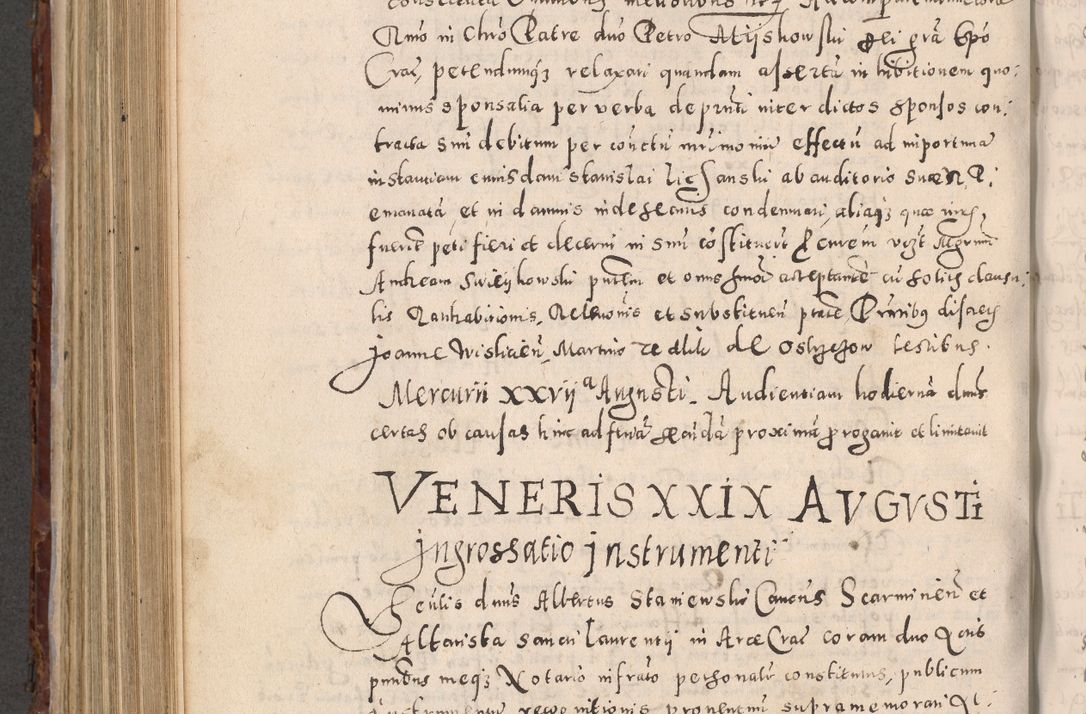 Rmo in Chro Patre dno Petro Mijshowski Dei gra Epo
Crac, petendumqz relaxari quandam assertu inhibitionem quo:
minus sponsalia per verba de pnti inter dictos sponsos con:
tracta suu debitum per cónctu mrimonii effectu ad importuna
instantiam eiusdam Stanislai ligsanski ab auditorio suae R P:
emanata et in damnis indefensus condemnari, aliaqz quae
fuerit peti fieri et decerni in suu cóstituerit Mgrum
Andream Swieijkowski pntem et onus hmoi acceptante cu solitis clausu:
lis Ratihabitionis, Releuonis et substituen ptate Pntibus discretis
Joanne Wislicien, Martino de Osthzezow testibus.
Mercurii xxvij a Augusti. Audientiam hodierna dnus
certas ob causas hinc ad furia proxima progauit et limitauit
VENERIS XXIX AVGVSTI
Jngrossatio jnstrumenti
dnus Albertus Staniewski Canonus Scarmirien et
Altarista Sancti Laurentij in Arce Crac coram dno
pntibus meqz Notario infrato personalr constitutus, publicum
Instrumentum recognitionis pronentum supramemorati